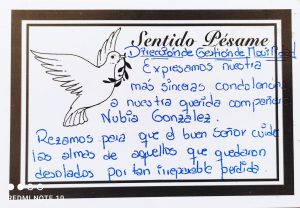 Sentido Pésame
Dirección de Gestión de
Expresamos nuestra
más sinceras condolencias
a nuestra querida compañera
Nubia González.
Rezamos para que el buen Señor cuide
las almas de aquellos que quedaron
desolados por tan irreparable perdida.
REDMI NOTE 10